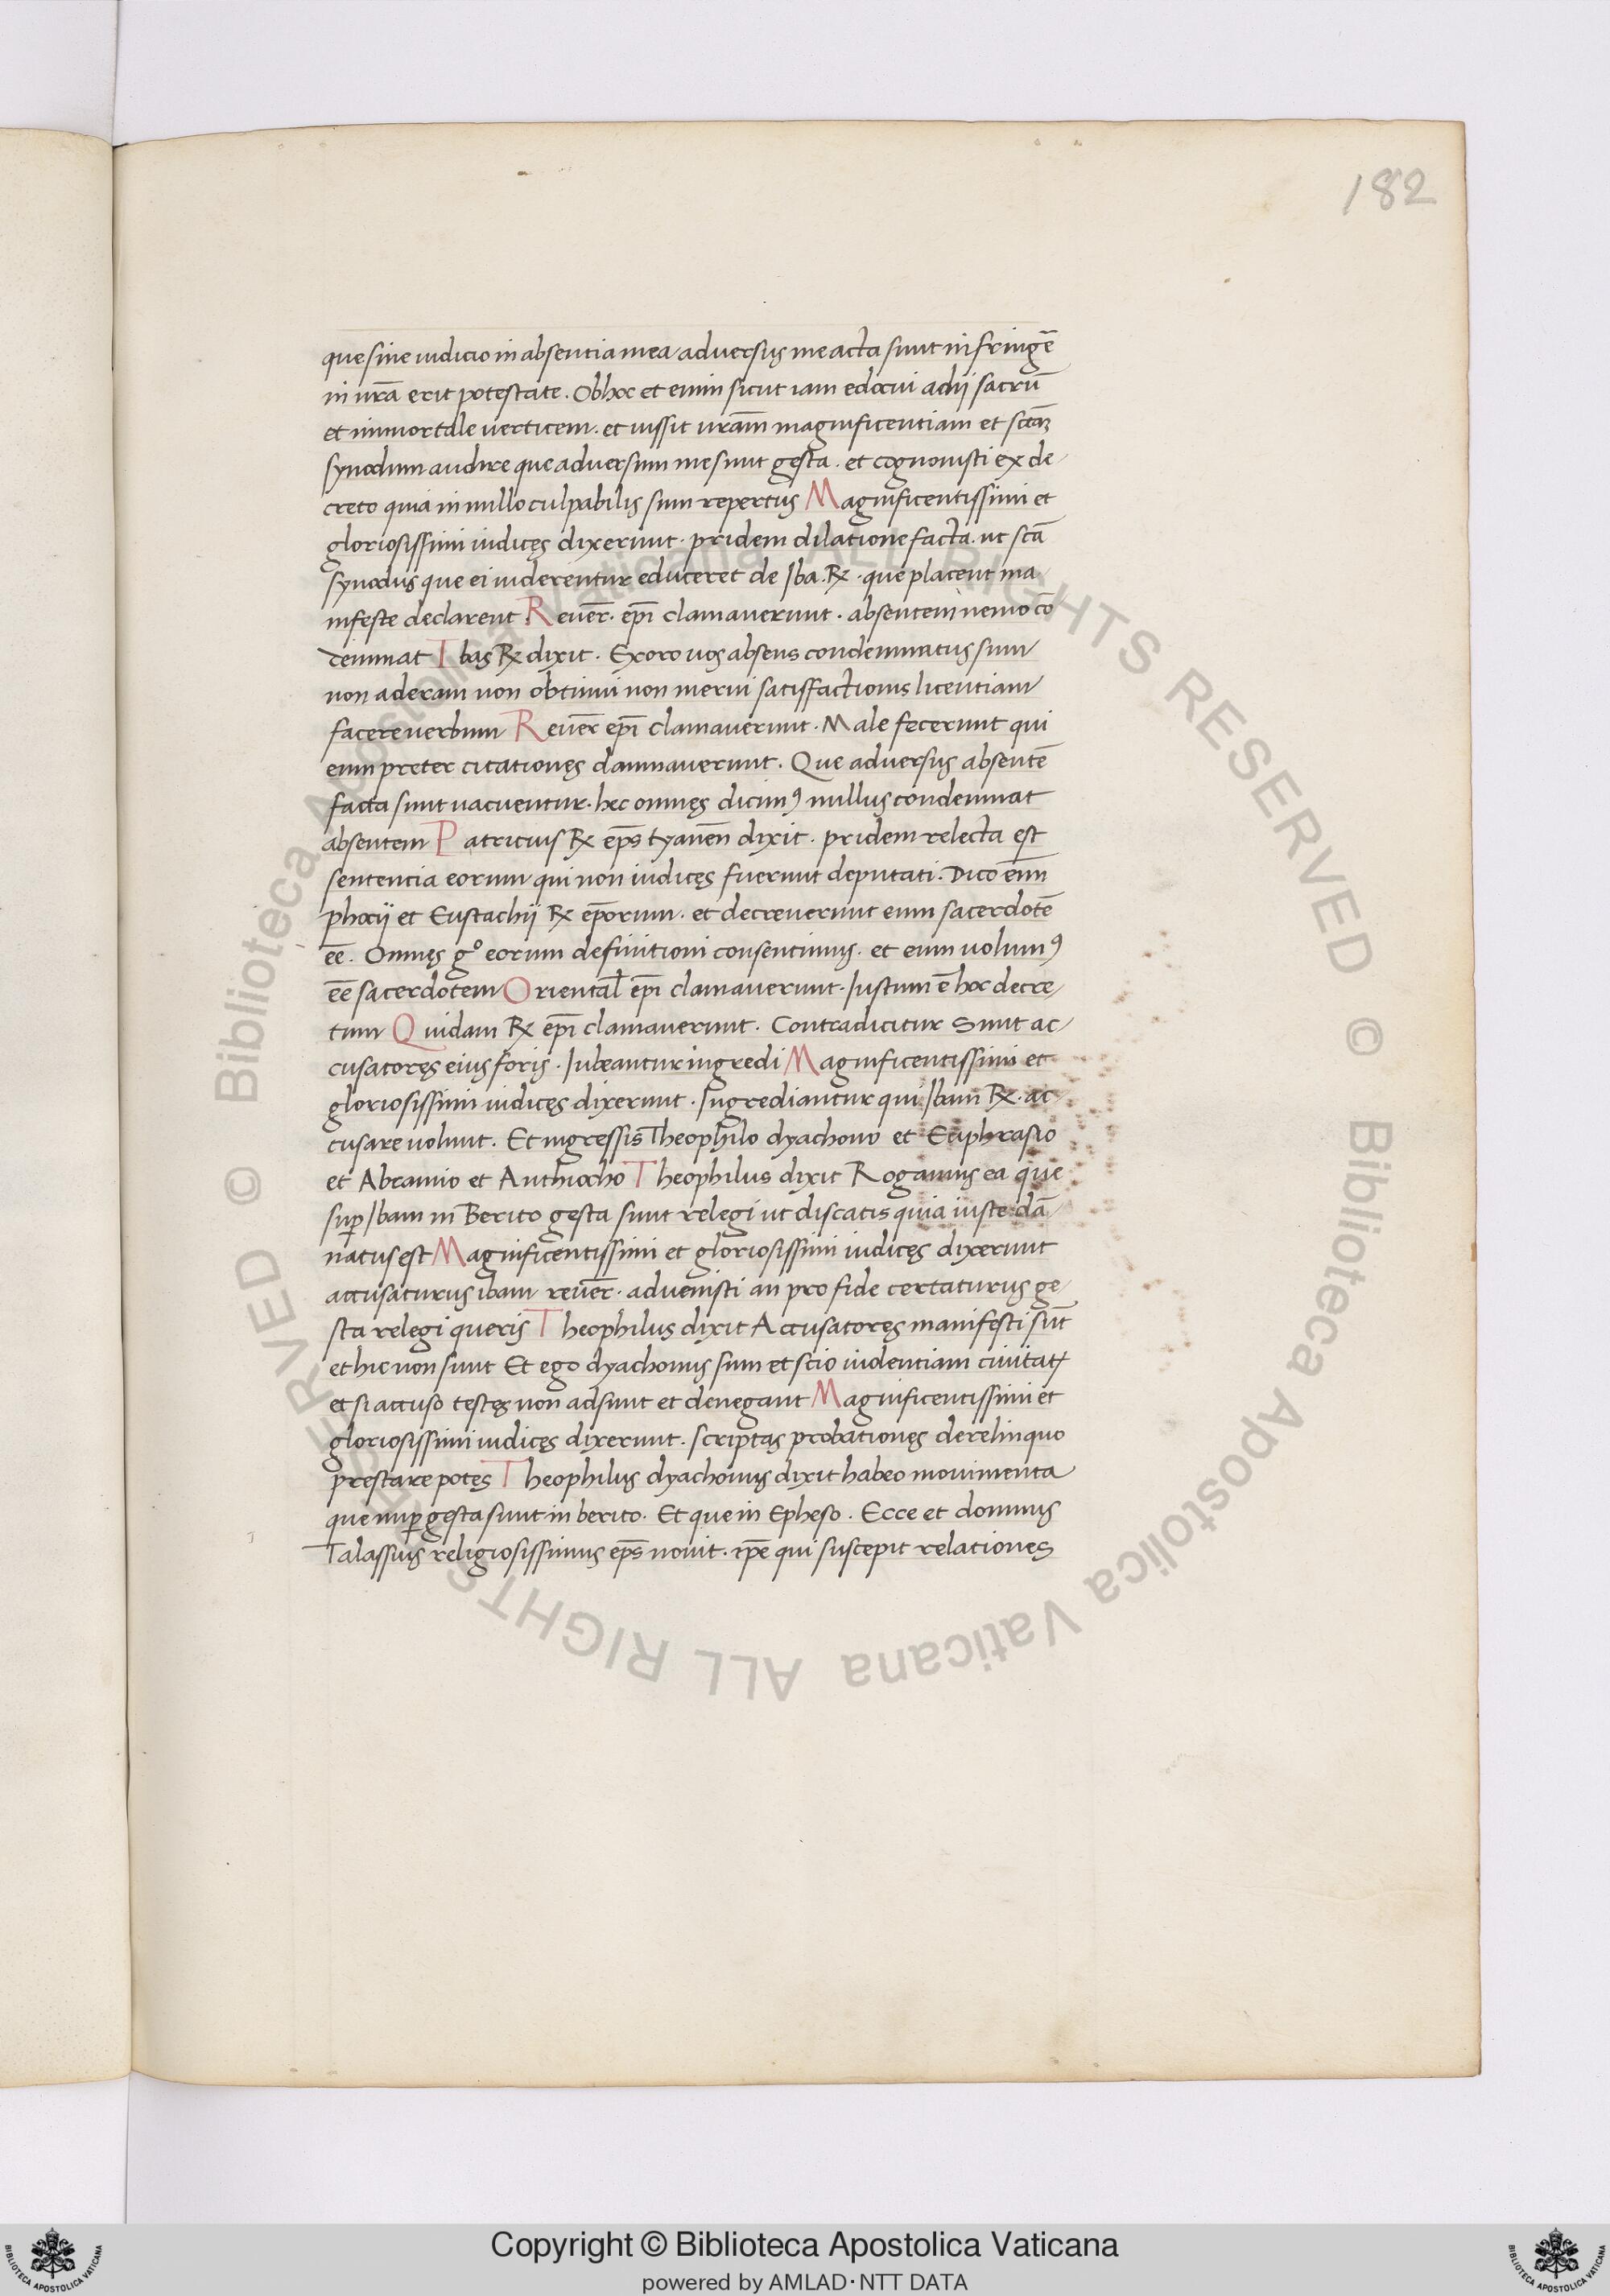 182
que sine iudicio in absentia mea adversus me acta sunt infringē
in vrā erit potestate. Ob hoc et enim sicut iam edocui adij sacrū
et immortale verticem. et iussit vrām magnificentiam et sctāꝫ
synodum audire que adversum me sunt gesta. et cognovisti ex de
creto quia in nullo culpabilis sum repertus Magnificentissimi et
gloriosissimi iudicęs dixerunt. pridem dilatione facta. ut sctā
synodus que ei viderentur educeret de Iba. R℞. que placent ma
nifeste declarent Reuer̄. ep̄i clamaverunt. absentem nemo cō
demnat Ibas ℞ dixit. Exoro vos absens condemnatus sum
non aderam non obtinui non merui satisfactionis licentiam
facere verbum Reuer̄ ep̄i clamaverunt. Male fecerunt qui
eum preter citationęs damnaverunt. Que adversus absentē
facta sunt vacuentur. hec omnęs dicimꝰ nullus condemnat
absentem Patricius ℞ ep̄s tyanen̄ dixit. pridem relecta est
sententia eorum qui non iudicęs fuerunt deputati. Dico enī
phocij et Eustachij ℞ ep̄orum. et decreverunt eum sacerdotē
eē. Omnęs gͦ eorum definitioni consentimus. et eum volumꝰ
eē sacerdotem Oriental̄ ep̄i clamaverunt. Iustum ē hoc decre
tum Quidam ℞ ep̄i clamaverunt. Contradicitur Sunt ac
cusatoręs eius foris. Iubeantur ingredi Magnificentissimi et
gloriosissimi iudicęs dixerunt. Ingrediantur qui Ibam ℞. ac
cusare volunt. Et ingressis Theophilo dyachono et Euphrasio
et Abramio et Anthiocho Theophilus dixit Rogamus ea que
suꝑ Ibam in Berito gesta sunt relegi ut discatis quia iuste dā
natus est Magnificentissimi et gloriosissimi iudicęs dixerunt
accusaturus ibam reuer̄. advenisti an pro fide certaturus ge
sta relegi queris Theophilus dixit Accusatoręs manifesti sūt
et hic non sunt Et ego dyachonus sum et scio violentiam civitatꝭ
et si accuso testęs non adsunt et denegant Magnificentissimi et
gloriosissimi iudicęs dixerunt. scriptas probationęs derelinquo
pręstare potęs Theophilus dyachonus dixit habeo monimenta
que nuꝑ gesta sunt in berito. Et que in Epheso. Ecce et domnus
Talassius religiosissimus ep̄s novit. ip̄e qui suscepit relationes
© Biblioteca Apostolica Vaticana ALL RIGHTS RESERVED © Biblioteca Apostolica Vaticana ALL RIGHTS RESERVED
Copyright © Biblioteca Apostolica Vaticana
powered by AMLAD·NTT DATA
BIBLIOTECA APOSTOLICA VATICANA
BIBLIOTECA APOSTOLICA VATICANA